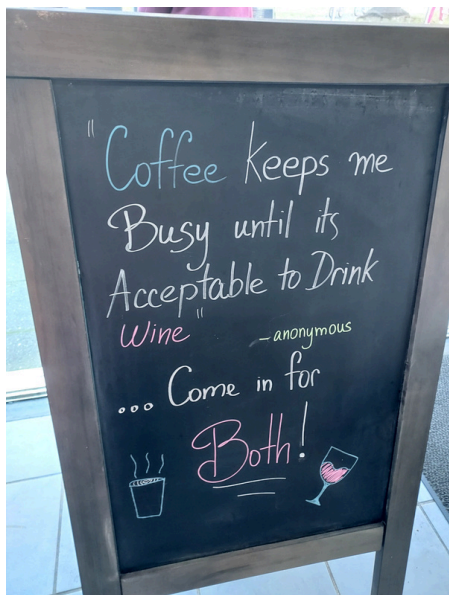 "Coffee Keeps me
Busy until its
Acceptable to Drink
Wine"
-anonymous
... Come in for
Both!